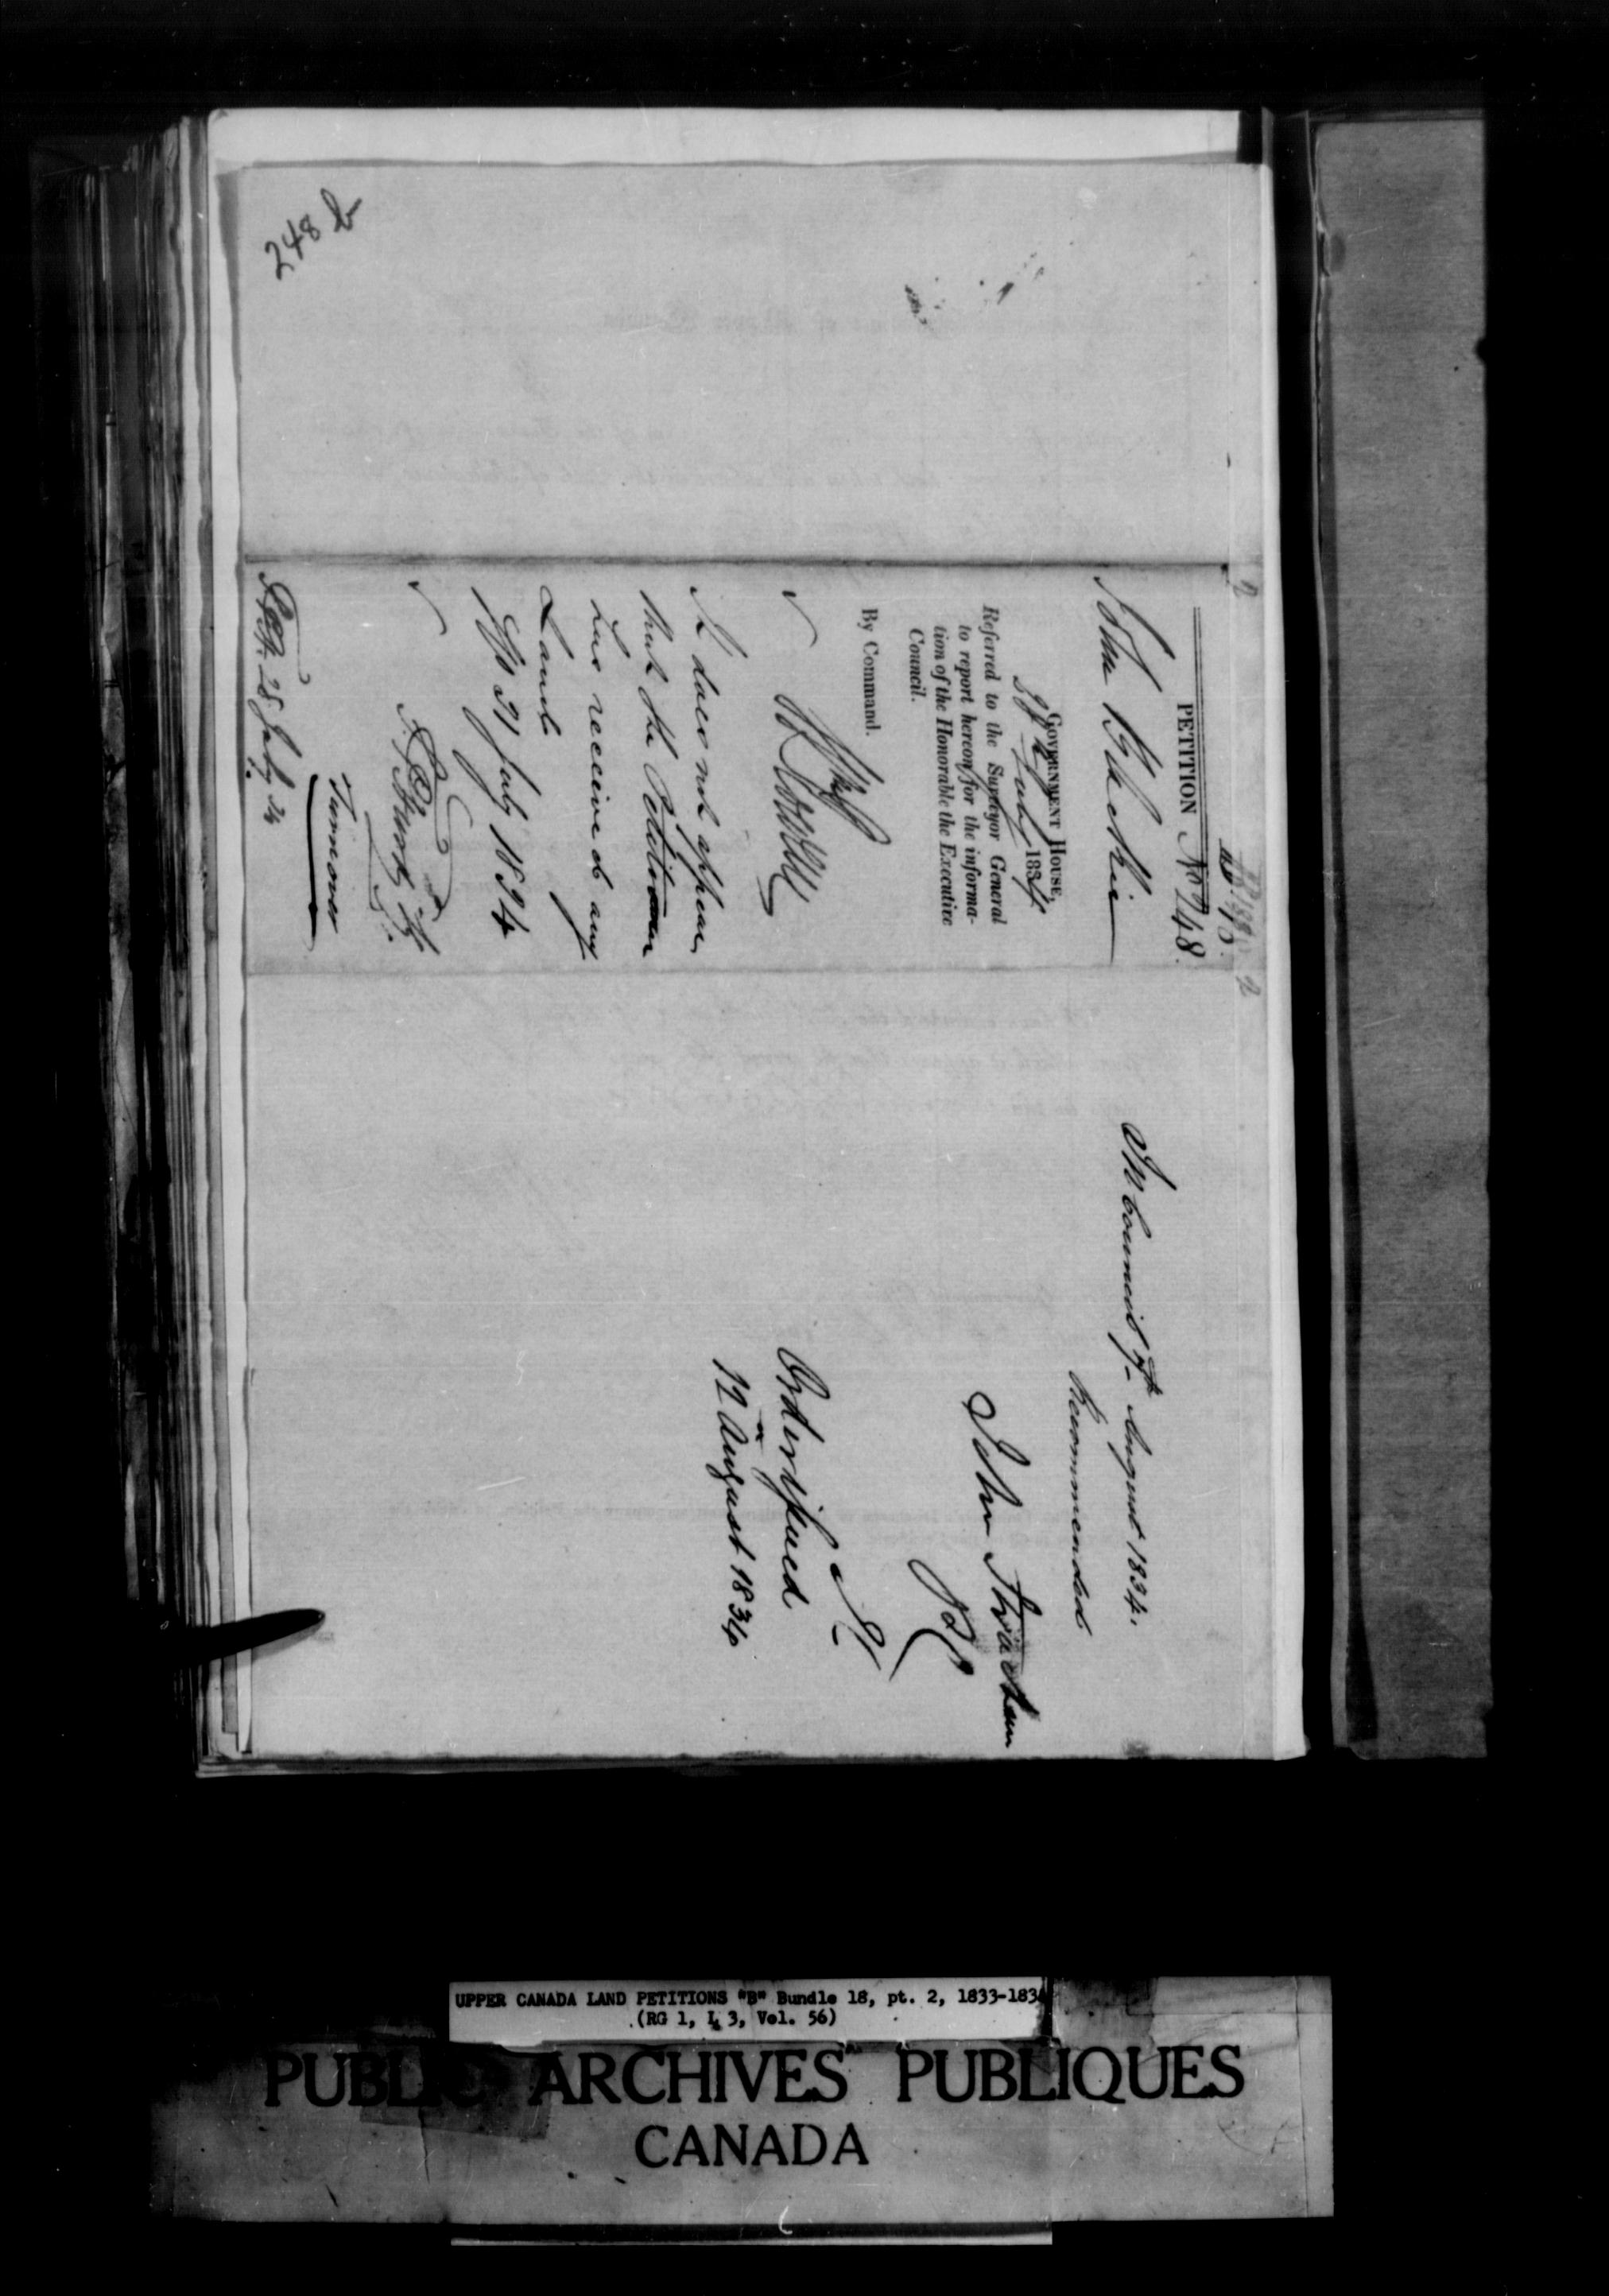 248 b
B 18
No 13.
PETITION No 248.
John Blackie
GOVERNMENT HOUSE,
28 July 1834
Referred to the Surveyor General
to report hereon, for the informa-
tion of the Honorable the Executive
Council.
By Command.
It does not appear
that the Petitioner
has received any
Lands
31 July 1834
28 July 34
Turnover
In Council 7th August 1834.
Recommended
John Strachan
P C
Order issued
12 August 1834
UPPER CANADA LAND PETITIONS "B" Bundle 18, pt. 2, 1833-1834
(RG 1, L 3, Vol. 56)
PUBLIC ARCHIVES PUBLIQUES
CANADA